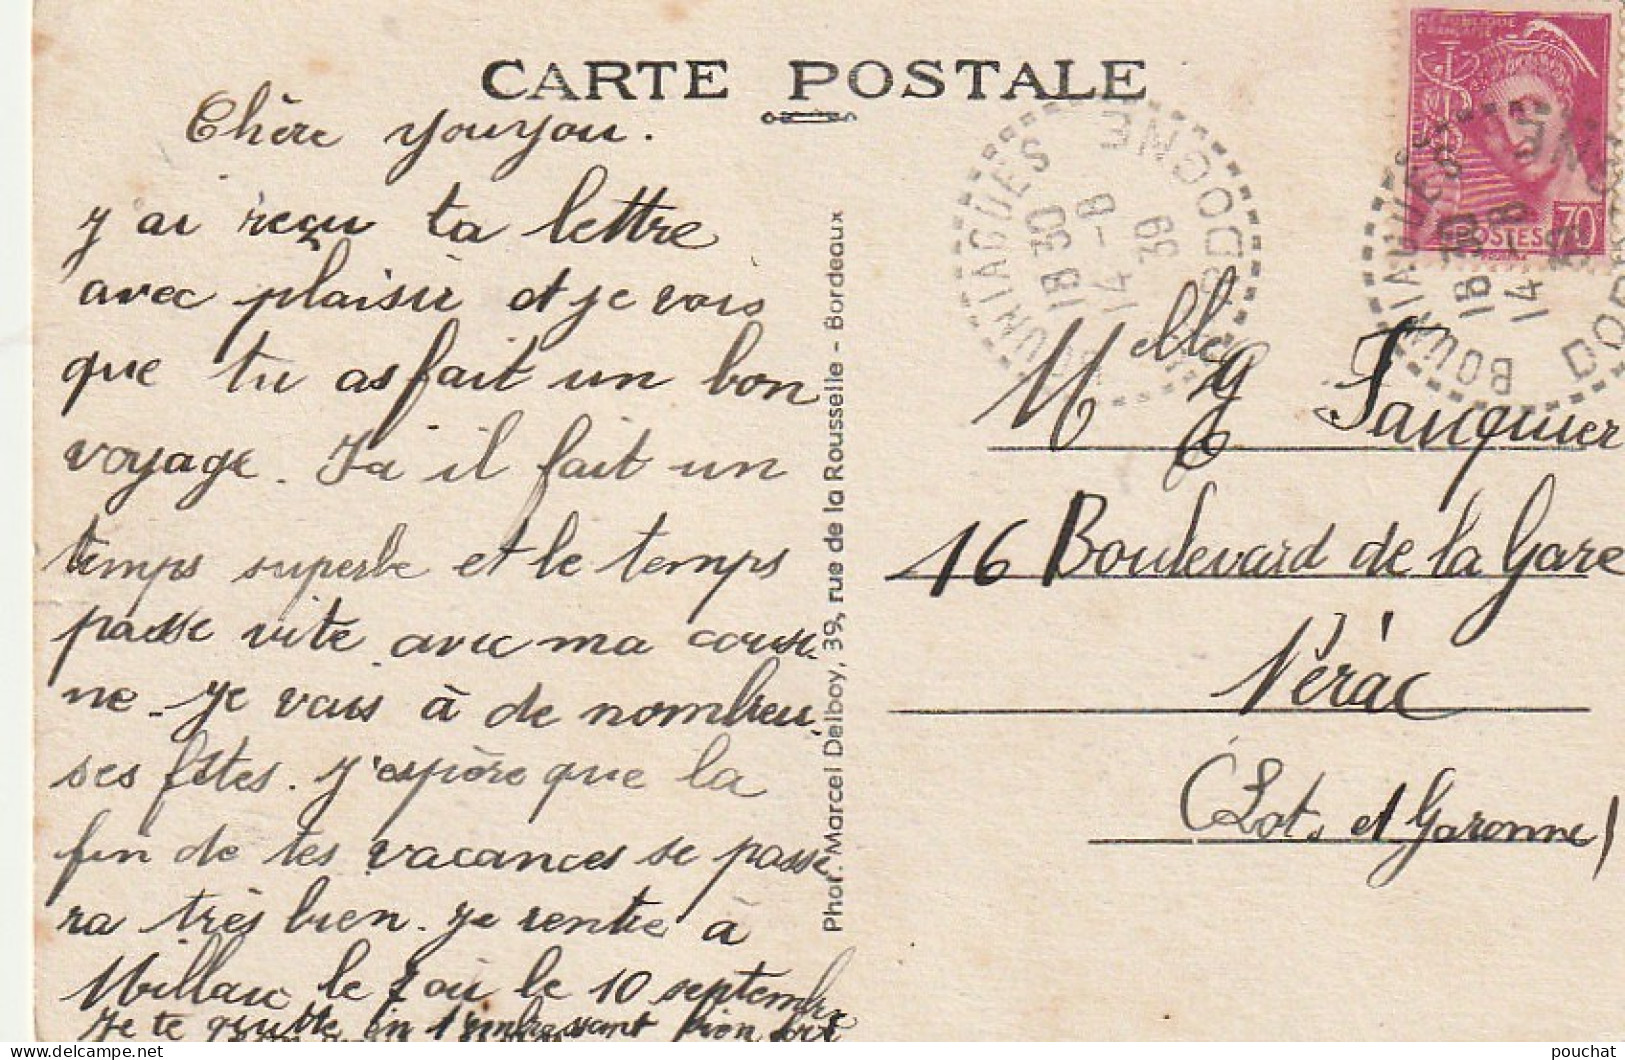 CARTE POSTALE
Chère youyou.
j'ai reçu ta lettre
avec plaisir et je vois
que tu as fait un bon
voyage. Ici il fait un
temps superbe et le temps
passe vite avec ma cousi-
ne. je vais à de nombreu
ses fêtes. j'espère que la
fin de tes vacances se passe
ra très bien. je rentre à
le ou le 10 septembre
Je te quitte en t'embrassant bien fort
Phot. Marcel Delboy, 39, rue de la Rousselle - Bordeaux
BOUNIAGUES
18 30
14 - 8
39
DORDOGNE
RÉPUBLIQUE
FRANÇAISE
POSTES
70
BOUNIAGUES
18 30
14 - 8
39
Melle G Fauquier
16 Boulevard de la Gare
Nérac
(Lot et Garonne)
pouchat